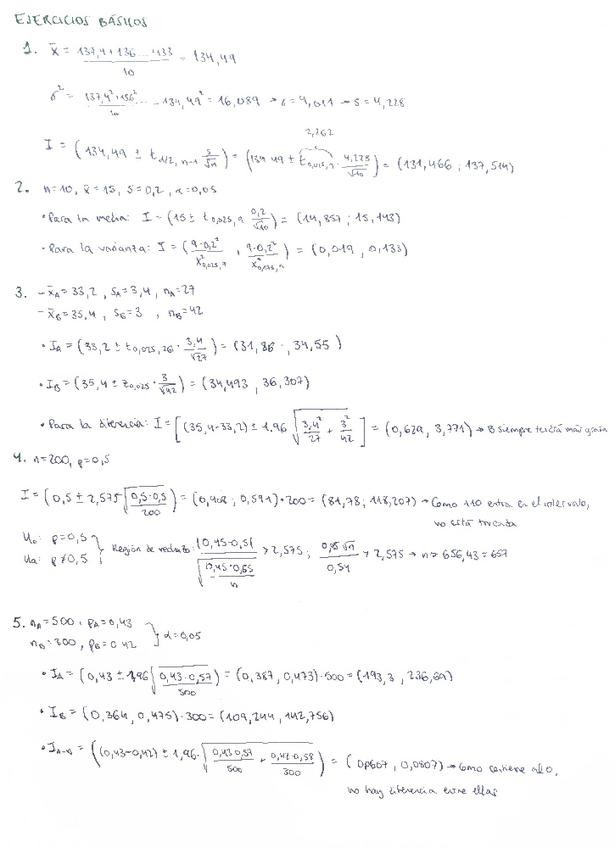 EJERCICIOS BÁSICOS
1. x̄ = (137,4+136...+133)/10 = 134,49
σ² = (137,4²+136²...)/10 - 134,49² = 16,089 → σ = 4,011 → s = 4,228
2,262
I = (134,49 ± t₁/₂, n-1 s/√n) = (134,49 ± t₀,₀₂₅,₉ · 4,228/√10) = (131,466 ; 137,514)
2. n=10, x̄=15, S=0,2, α=0,05
• Para la media: I = (15 ± t₀,₀₂₅,₉ 0,2/√10) = (14,857 ; 15,143)
• Para la varianza: I = (9·0,2²/X²₀,₀₂₅,₉ , 9·0,2²/X²₀,₉₇₅,₉) = (0,019 , 0,133)
3. - x̄A = 33,2 , SA = 3,4 , nA = 27
- x̄B = 35,4 , SB = 3 , nB = 42
• IA = (33,2 ± t₀,₀₂₅,₂₆ · 3,4/√27) = (31,86 , 34,55)
• IB = (35,4 ± z₀,₀₂₅ · 3/√42) = (34,493 , 36,307)
• Para la diferencia: I = [(35,4-33,2) ± 1.96 √(3,4²/27 + 3²/42)] = (0,629, 3,771) → B siempre tendrá más
4. n=200, p=0,5
I = (0,5 ± 2,575 √(0,5·0,5/200)) = (0,408 ; 0,591)·200 = (81,78; 118,207) → Como 110 entra en el intervalo,
no está trucada
H₀: p=0,5
Ha: p≠0,5 } Región de rechazo: |0,45-0,5|/√(0,45·0,55/n) > 2,575 ; √n > 2,575 → n > 656,43 = 657
5. nA = 500, pA = 0,43
nB = 300, pB = 0,42 } α = 0,05
• IA = (0,43 ± 1,96 √(0,43·0,57/500)) = (0,387, 0,473)·500 = (193,3 , 236,69)
• IB = (0,364, 0,475)·300 = (109,244, 142,756)
• IA-B = ((0,43-0,42) ± 1,96·√(0,43·0,57/500 + 0,42·0,58/300)) = ( , 0,0807) → Como contiene al 0,
no hay diferencia entre ellas